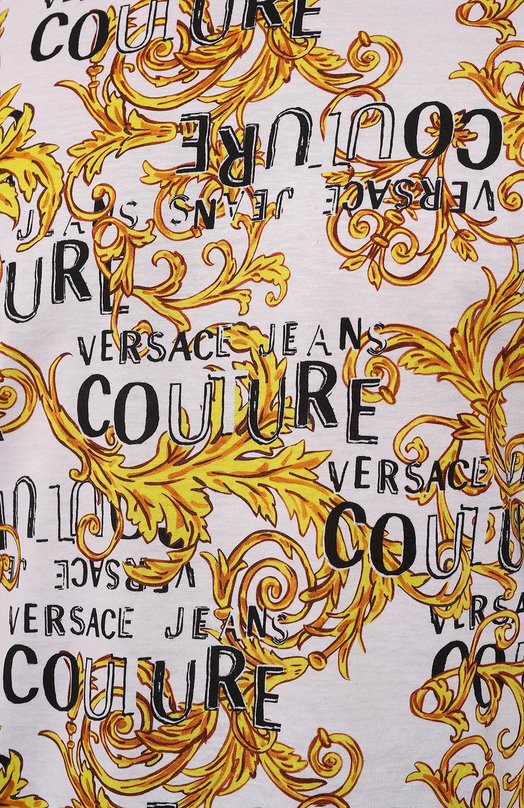 VERSACE JEANS
COUTURE
COUTURE
VERSACE JEANS
JEANS
URE
VERSACE JEANS
COUTURE
VERSACE
COUTU
COUTU
VERSACE JE
VERSACE JEANS
COUTURE
VERSA
COU